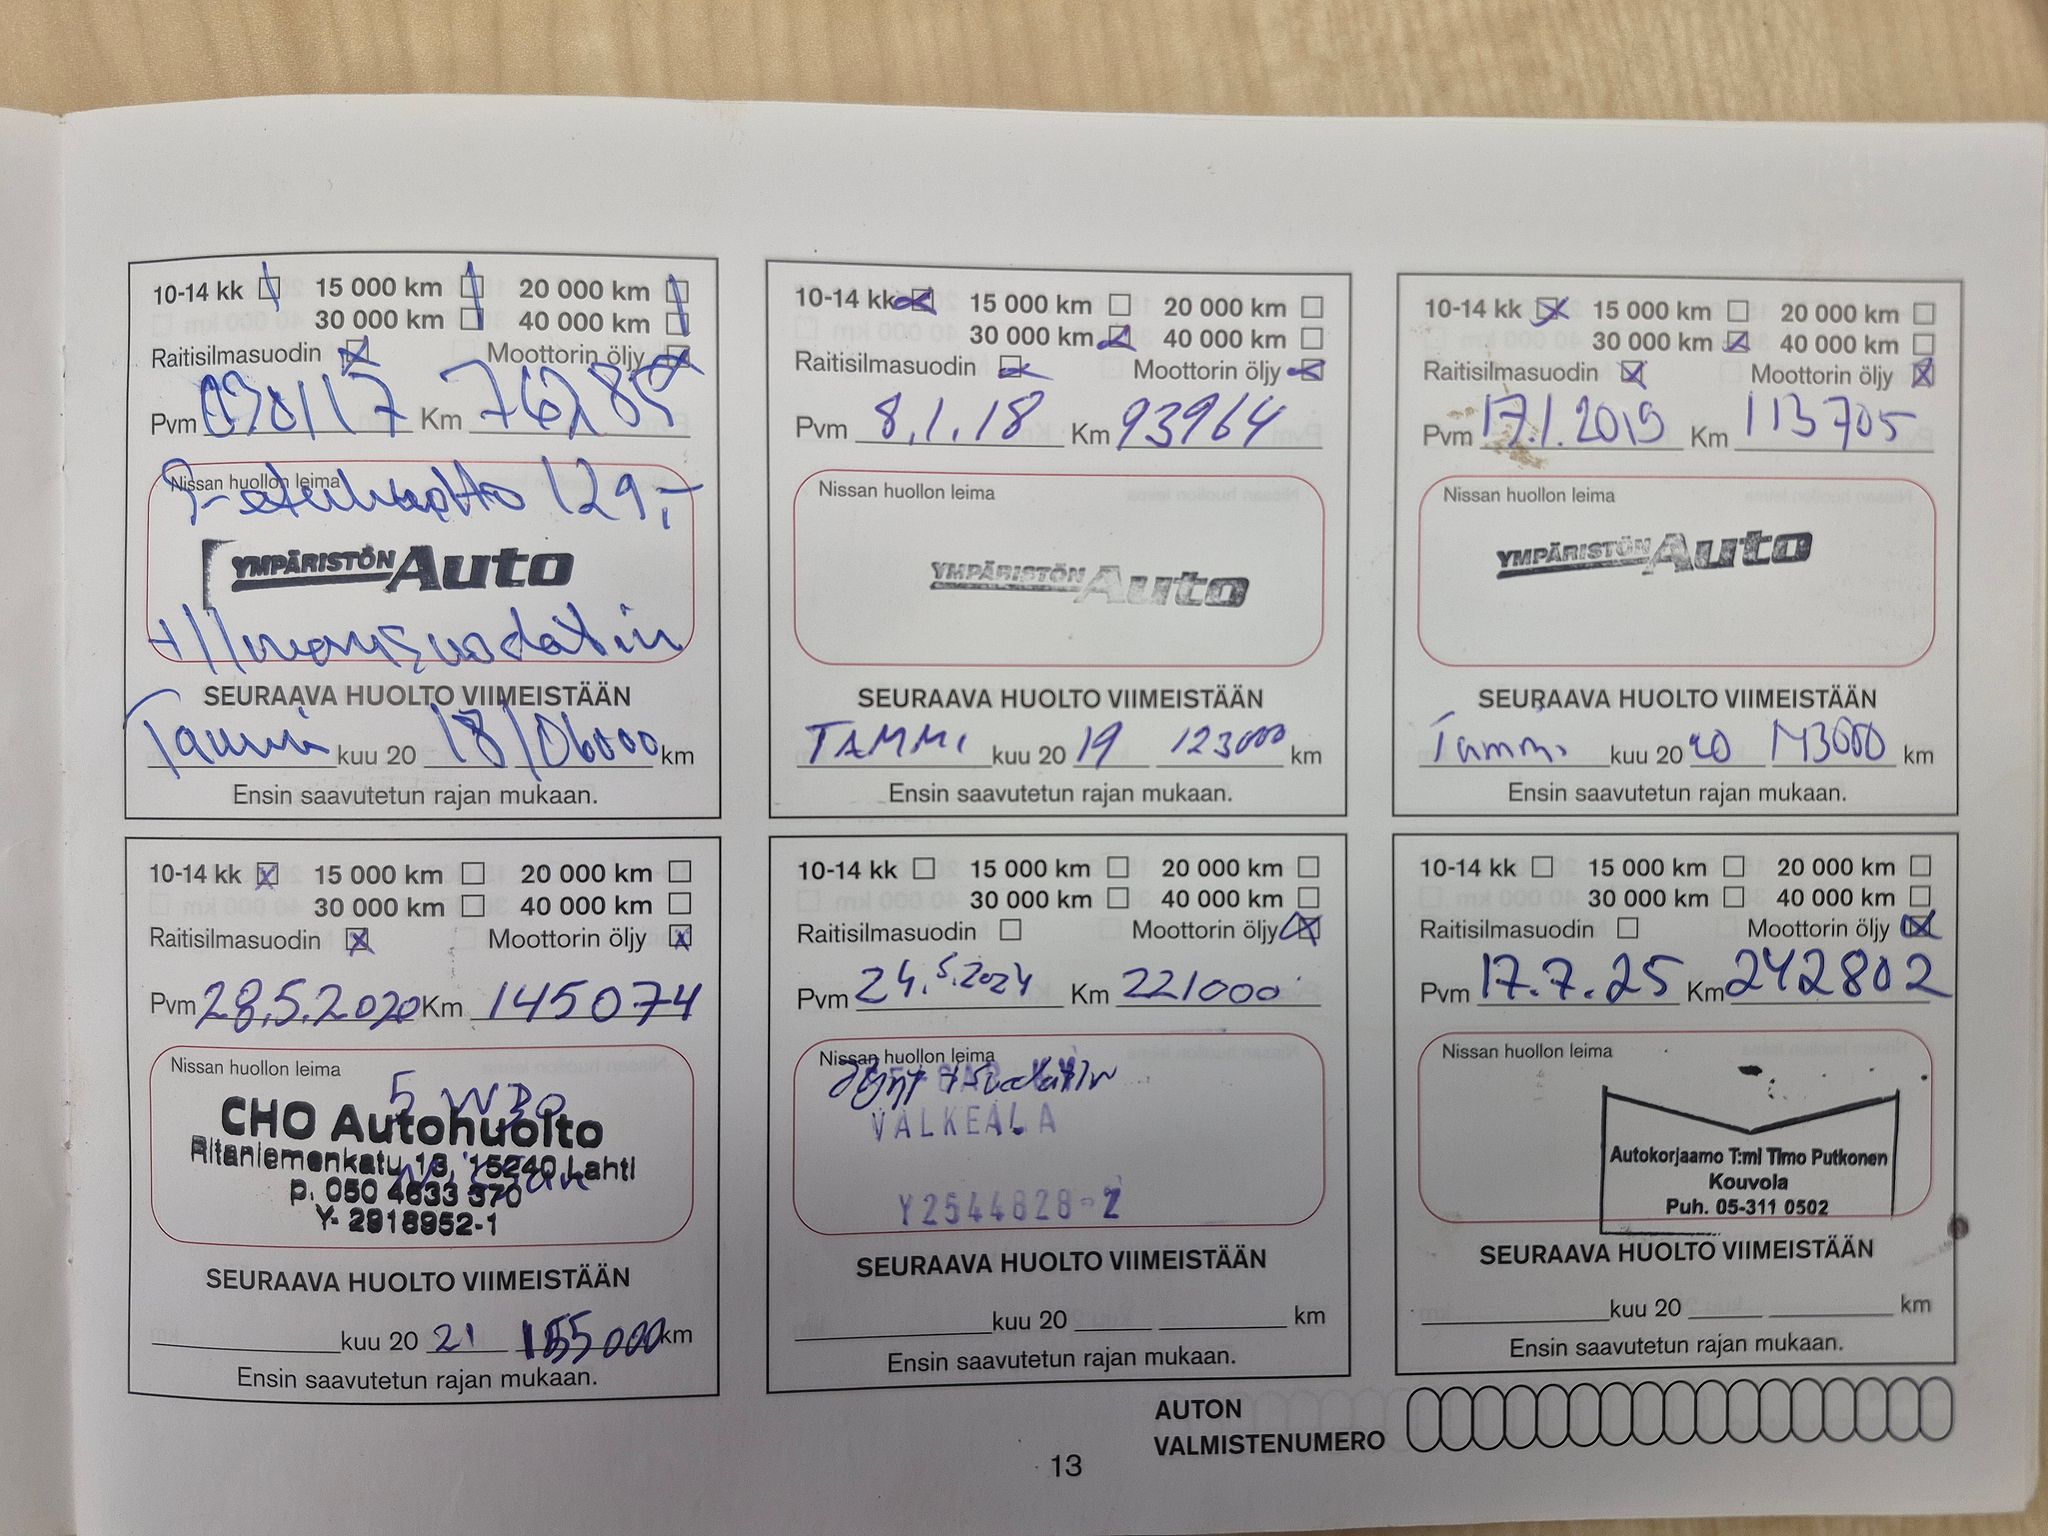 10-14 kk 15 000 km 20 000 km
30 000 km 40 000 km
Raitisilmasuodin Moottorin öljy
Pvm Km 76285
Nissan huollon leima
129,-
YMPÄRISTÖN Auto
+ Ilmansuodatin
SEURAAVA HUOLTO VIIMEISTÄÄN
Tammi kuu 20 18/106000 km
Ensin saavutetun rajan mukaan.
10-14 kk 15 000 km 20 000 km
30 000 km 40 000 km
Raitisilmasuodin Moottorin öljy
Pvm 8.1.18 Km 93964
Nissan huollon leima
YMPÄRISTÖN Auto
SEURAAVA HUOLTO VIIMEISTÄÄN
TAMMI kuu 20 19 123000 km
Ensin saavutetun rajan mukaan.
10-14 kk 15 000 km 20 000 km
30 000 km 40 000 km
Raitisilmasuodin Moottorin öljy
Pvm 17.1.2019 Km 113705
Nissan huollon leima
YMPÄRISTÖN Auto
SEURAAVA HUOLTO VIIMEISTÄÄN
Tammi kuu 20 20 143000 km
Ensin saavutetun rajan mukaan.
10-14 kk 15 000 km 20 000 km
30 000 km 40 000 km
Raitisilmasuodin Moottorin öljy
Pvm 28.5.2020 Km 145074
Nissan huollon leima
5W30
CHO Autohuolto
Ritaniemenkatu 13, 15240 Lahti
Nissan
p. 050 4633 370
Y- 2918952-1
SEURAAVA HUOLTO VIIMEISTÄÄN
kuu 20 21 155000 km
Ensin saavutetun rajan mukaan.
10-14 kk 15 000 km 20 000 km
30 000 km 40 000 km
Raitisilmasuodin Moottorin öljy
Pvm 24.5.2024 Km 221000
Nissan huollon leima
Öljyt + suodatin
VALKEALA
Y2544828-2
SEURAAVA HUOLTO VIIMEISTÄÄN
kuu 20 km
Ensin saavutetun rajan mukaan.
10-14 kk 15 000 km 20 000 km
30 000 km 40 000 km
Raitisilmasuodin Moottorin öljy
Pvm 17.7.25 Km 242802
Nissan huollon leima
Autokorjaamo T:ml Timo Putkonen
Kouvola
Puh. 05-311 0502
SEURAAVA HUOLTO VIIMEISTÄÄN
kuu 20 km
Ensin saavutetun rajan mukaan.
AUTON
VALMISTENUMERO
13